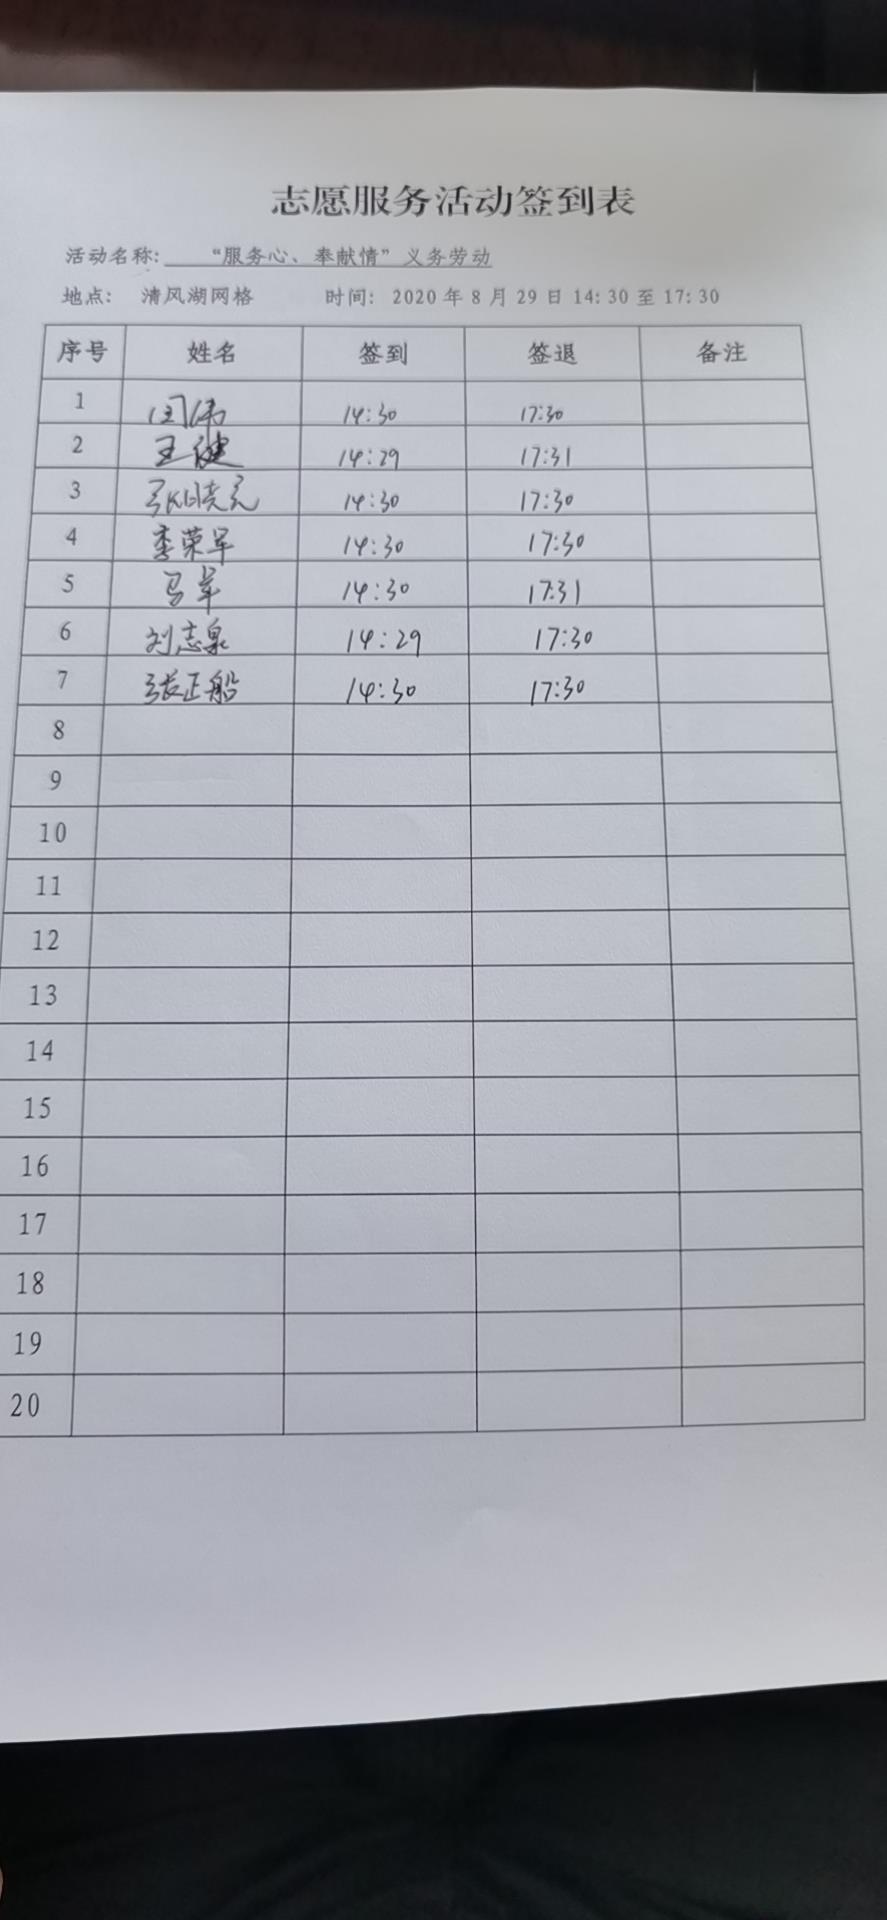 志愿服务活动签到表
活动名称: “服务心、奉献情”义务劳动
地点: 清风湖网格 时间: 2020年8月29日14:30至17:30
序号 姓名 签到 签退 备注
1 闫伟 14:30 17:30
2 王健 14:29 17:31
3 张晓亮 14:30 17:30
4 李荣军 14:30 17:30
5 马军 14:30 17:31
6 刘志泉 14:29 17:30
7 张正船 14:30 17:30
8
9
10
11
12
13
14
15
16
17
18
19
20